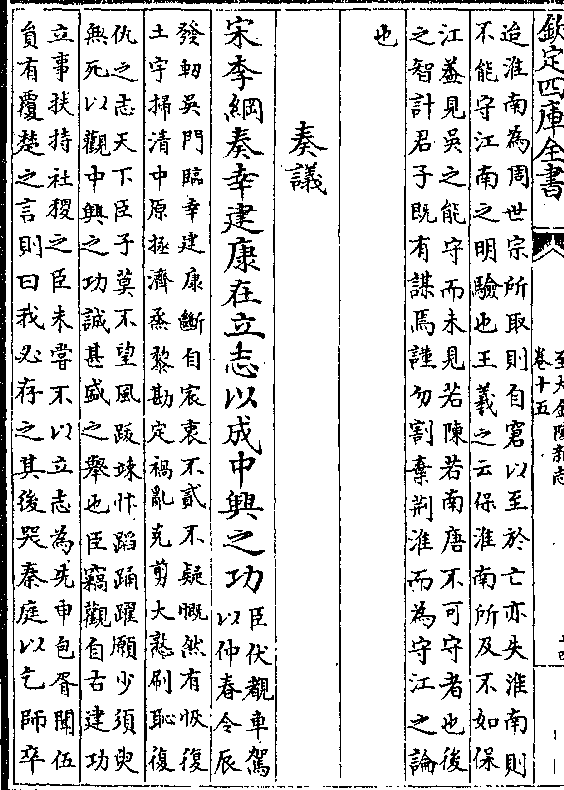 欽定四庫全書
至大金陵新志
卷十五
迨淮南為周世宗所取則自窘以至於亡亦失淮南則
不能守江南之明驗也王羲之云保淮南所及不如保
江葢見吳之能守而未見若陳若南唐不可守者也後
之智計君子既有謀焉謹勿割棄荆淮而為守江之論
也
奏議
宋李綱奏幸建康在立志以成中興之功
臣伏覩車駕
以仲春令辰
發軔吳門臨幸建康斷自宸衷不貳不疑慨然有恢復
土宇掃清中原拯濟烝黎勘定禍亂克剪大憝刷恥復
仇之志天下臣子莫不望風踴竦忭蹈踊躍願少須臾
無死以觀中興之功誠甚盛之舉也臣竊觀自古建功
立事扶持社稷之臣未嘗不以立志為先申包胥聞伍
負有覆楚之言則曰我必存之其後哭秦庭以乞師卒